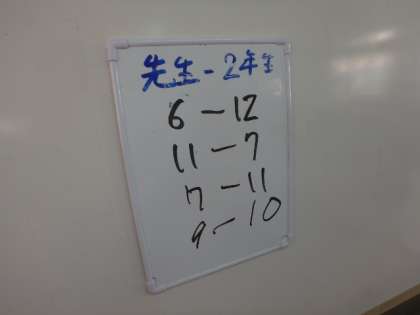 先生-2年生
6-12
11-7
7-11
9-10